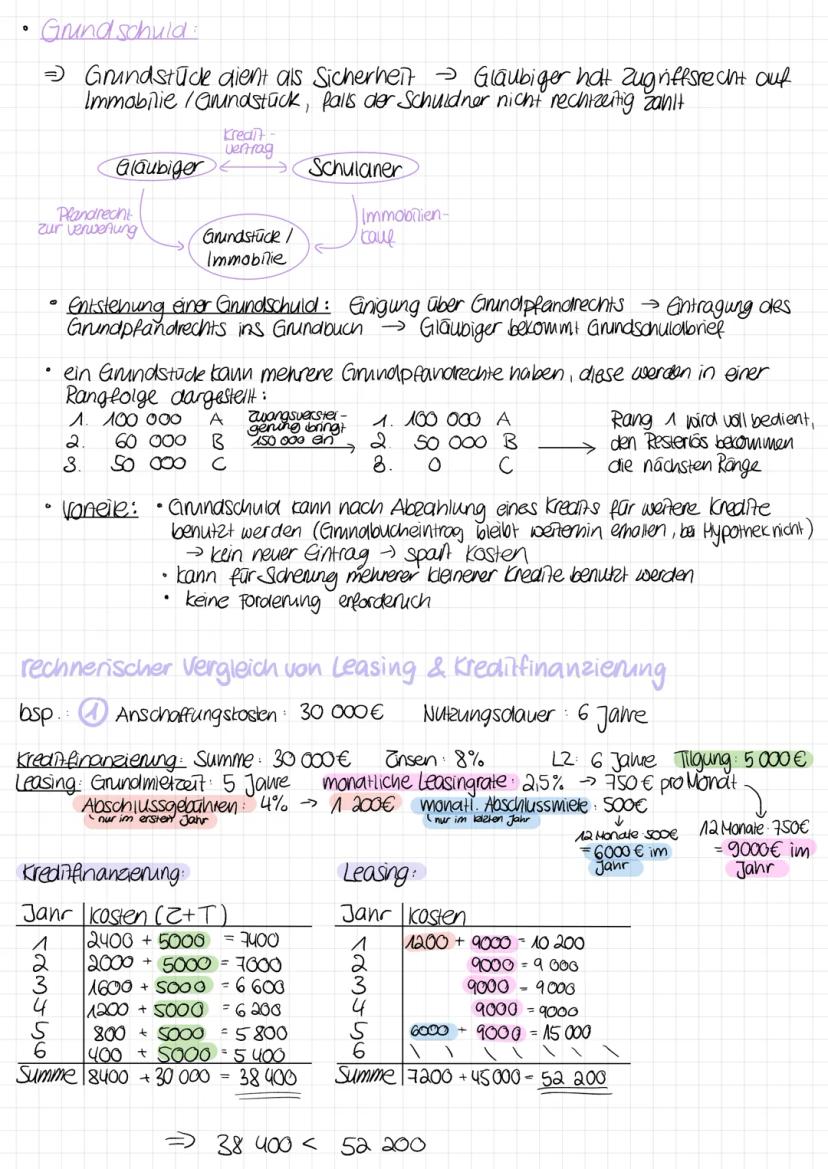 • Grundschuld:
⇒ Grundstück dient als Sicherheit → Gläubiger hat Zugriffsrecht auf
Immobilie / Grundstück, falls der Schuldner nicht rechtzeitig zahlt
Kredit-
vertrag
Gläubiger ↔ Schuldner
Pfandrecht
zur Verwertung
Immobilien-
kauf
Grundstück /
Immobilie
• Entstehung einer Grundschuld: Einigung über Grundpfandrechts → Eintragung des
Grundpfandrechts ins Grundbuch → Gläubiger bekommt Grundschuldbrief
• ein Grundstück kann mehrere Grundpfandrechte haben, diese werden in einer
Rangfolge dargestellt:
1. 100 000 A
2. 60 000 B
3. 50 000 C
Zwangsverstei-
gerung bringt
150 000 ein →
1. 100 000 A
2. 50 000 B →
3. 0 C
Rang 1 wird voll bedient,
den Resterlös bekommen
die nächsten Ränge
• Vorteile: • Grundschuld kann nach Abzahlung eines Kredits für weitere Kredite
benutzt werden (Grundbucheintrag bleibt weiterhin erhalten, bei Hypothek nicht)
→ kein neuer Eintrag → spart Kosten
• kann für Sicherung mehrerer kleinerer Kredite benutzt werden
• keine Forderung erforderlich
rechnerischer Vergleich von Leasing & Kreditfinanzierung
bsp.: 1 Anschaffungskosten: 30 000€ Nutzungsdauer: 6 Jahre
Kreditfinanzierung: Summe: 30 000€ Zinsen: 8% LZ: 6 Jahre Tilgung: 5 000€
Leasing: Grundmietzeit: 5 Jahre monatliche Leasingrate: 2,5% → 750 € pro Monat
Abschlussgebühren: 4% → 1 200€ monatl. Abschlussmiete: 500€
nur im ersten Jahr nur im letzten Jahr
12 Monate · 500€
= 6000 € im
Jahr
12 Monate · 750€
= 9000€ im
Jahr
Kreditfinanzierung:
Jahr Kosten (Z+T)
1 2400 + 5000 = 7400
2 2000 + 5000 = 7000
3 1600 + 5000 = 6 600
4 1200 + 5000 = 6 200
5 800 + 5000 = 5 800
6 400 + 5000 = 5 400
Summe 8400 + 30 000 = 38 400
Leasing:
Jahr Kosten
1 1200 + 9000 = 10 200
2 9000 = 9 000
3 9000 = 9 000
4 9000 = 9000
5 6000 + 9000 = 15 000
6 \ \ \ \ \ \ \
Summe 7200 + 45 000 = 52 200
⇒ 38 400 < 52 200